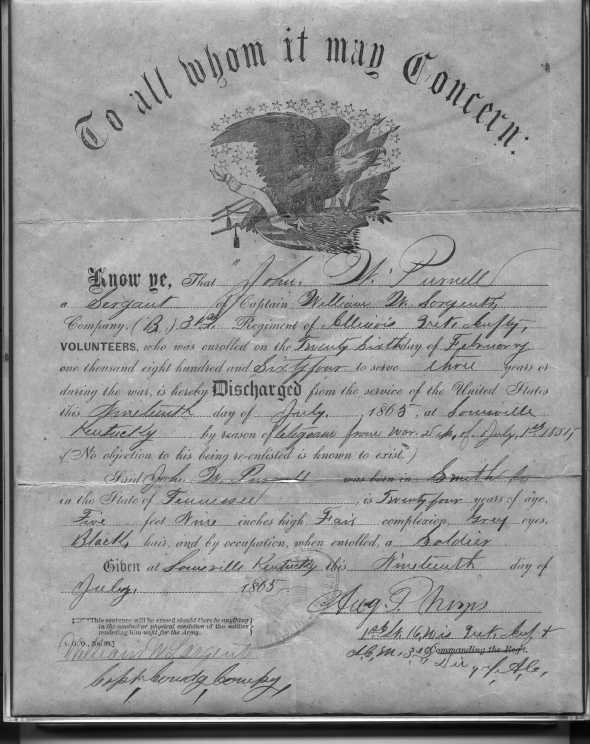 To all whom it may Concern:
Know ye, That "John W. Purnell
a Sergant of Captain William W. Sargents,
Company, (B.) 31st. Regiment of Illinois Vet. Infty,
VOLUNTEERS, who was enrolled on the Twenty Sixth day of February
one thousand eight hundred and Sixty four to serve three years or
during the war, is hereby Discharged from the service of the United States
this Nineteenth day of July, 1865, at Louisville
Kentucky by reason of
(No objection to his being re-enlisted is known to exist.*)
Said John W. Purnell was born in Smith Co
in the State of Tennessee, is Twenty four years of age,
Five feet Nine inches high, Fair complexion, Grey eyes,
Black, hair, and by occupation, when enrolled, a Soldier
Given at Louisville Kentucky this Nineteenth day of
July, 1865
*This sentence will be erased should there be anything
in the conduct or physical condition of the soldier
rendering him unfit for the Army.
[A. G. O., No. 99.]
1st Lt. 16, Wis Vet. Inf &
A, C, M, 3rd Commanding the Reg't.
Div 17, A, C,
William W Sargent
Capt, Comdg Compy,